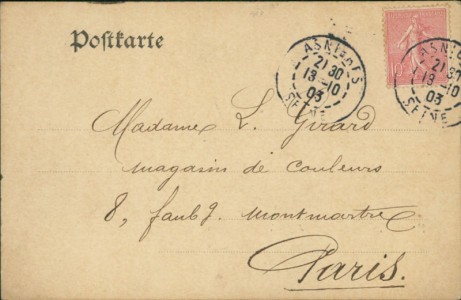 Postkarte
ASNIERES
21 30
13 -10
03
SEINE
ASNIE
21 30
13 -10
03
SEINE
10
Madame L. Girard
magasin de couleurs
8, faubg. Montmartre
Paris.